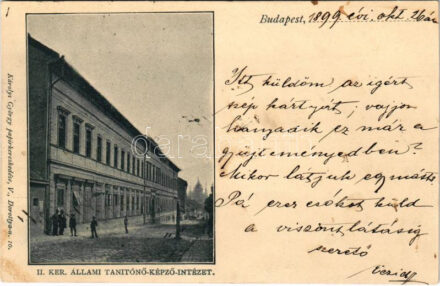 Budapest, 1899 évi. okt. 26án
Itt küldöm az igért
szép kártyát; vajjon
hanyadik ez már a
gyüjteményedben?
Mikor látjuk egymást?
Pá ezer csókot küld
a viszontlátásig
szerető
Károlyi György papirkereskedése, V., Dorottya-u. 10.
II. KER. ÁLLAMI TANITÓNŐ-KÉPZŐ-INTÉZET.
darabanth